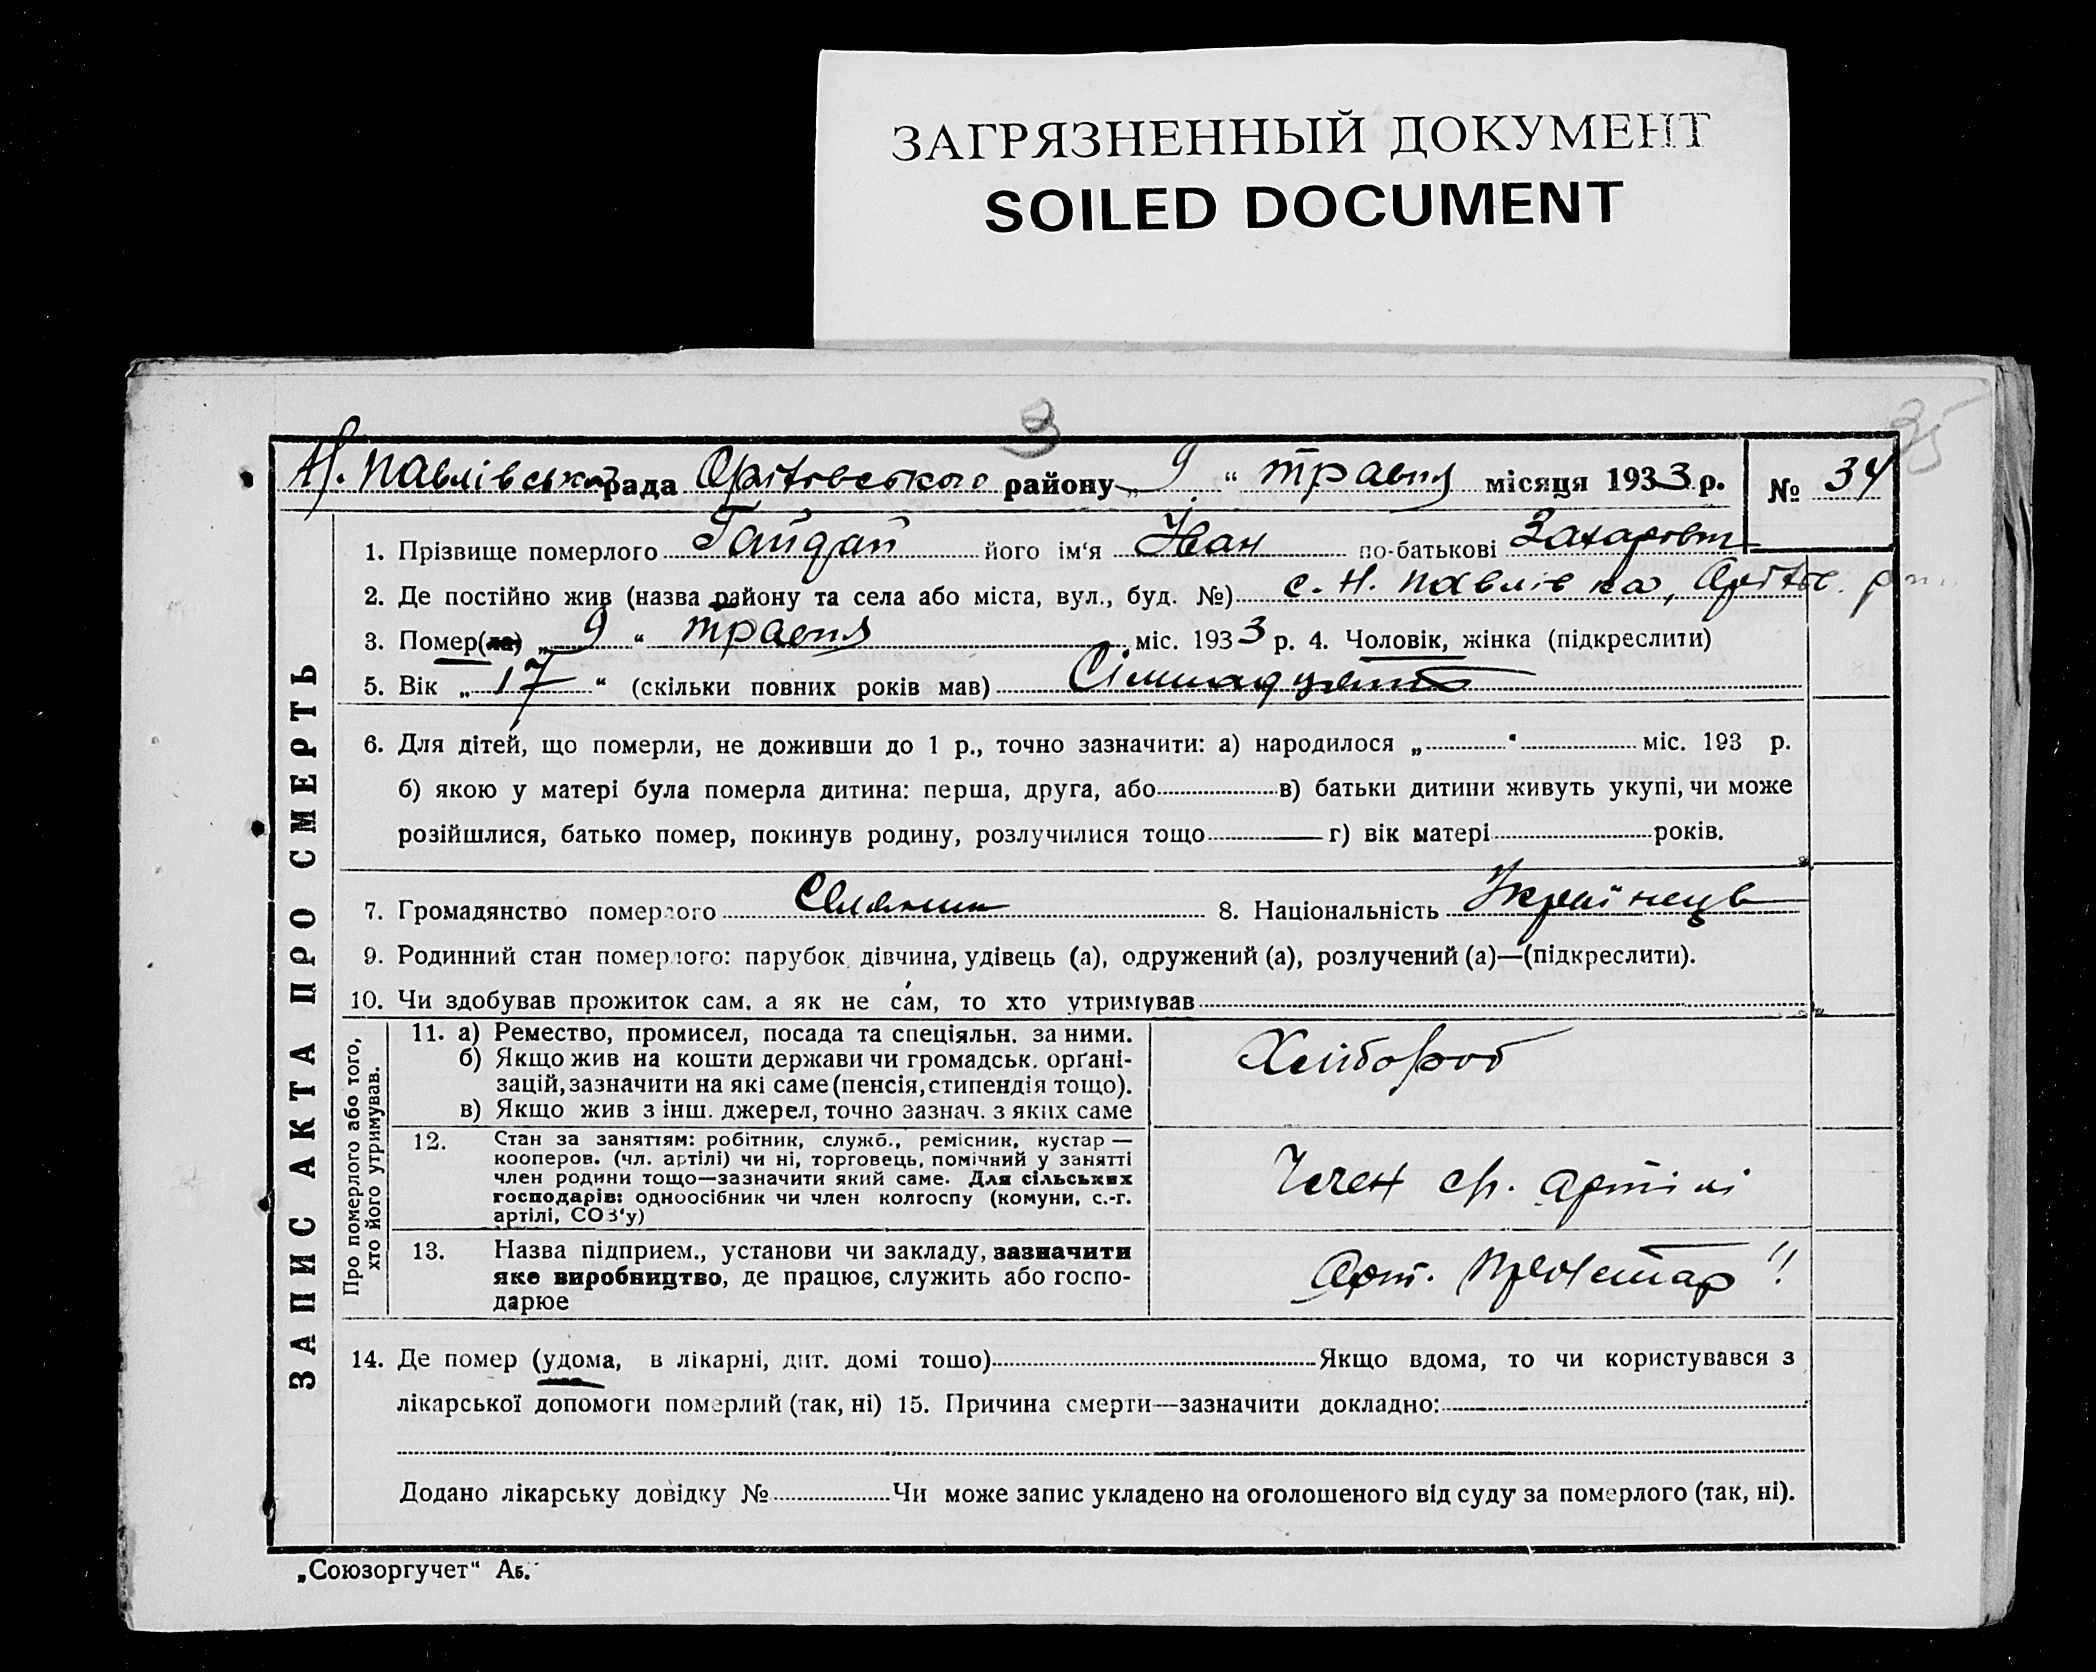 ЗАГРЯЗНЕННЫЙ ДОКУМЕНТ
SOILED DOCUMENT
3
35
Н. Павлівська рада Оріхівського району „ 9 “ травня місяця 1933 р. № 34
ЗАПИС АКТА ПРО СМЕРТЬ
1. Прізвище померлого Гайдай його ім‘я Іван по-батькові Захарович
2. Де постійно жив (назва району та села або міста, вул., буд. №) с. Н. Павлівка, Оріхів. р-н
3. Помер(ла) „ 9 “ травня міс. 1933 р. 4. Чоловік, жінка (підкреслити)
5. Вік „ 17 “ (скільки повних років мав) Сімнадцять
6. Для дітей, що померли, не доживши до 1 р., точно зазначити: а) народилося „ “ міс. 193 р.
б) якою у матері була померла дитина: перша, друга, або в) батьки дитини живуть укупі, чи може
розійшлися, батько помер, покинув родину, розлучилися тощо г) вік матері років.
7. Громадянство померлого Селянин 8. Національність Українець
9. Родинний стан померлого: парубок, дівчина, удівець (а), одружений (а), розлучений (а)—(підкреслити).
10. Чи здобував прожиток сам, а як не сам, то хто утримував
Про померлого або того,
хто його утримував.
11. а) Ремество, промисел, посада та спеціяльн. за ними.
б) Якщо жив на кошти держави чи громадськ. орґані-
зацій, зазначити на які саме (пенсія, стипендія тощо).
в) Якщо жив з інш. джерел, точно зазнач. з яких саме
Хлібороб
12. Стан за заняттям: робітник, служб., ремісник, кустар —
кооперов. (чл. артілі) чи ні, торговець, помічний у занятті
член родини тощо—зазначити який саме. Для сільських
господарів: одноосібник чи член колгоспу (комуни, с.-г.
артілі, СОЗ‘у)
Член с/г. артілі
13. Назва підприєм., установи чи закладу, зазначити
яке виробництво, де працює, служить або госпо-
дарює
Арт. Пролетар"
14. Де помер (удома, в лікарні, дит. домі тощо) Якщо вдома, то чи користувався з
лікарської допомоги померлий (так, ні) 15. Причина смерти—зазначити докладно:
Додано лікарську довідку № Чи може запис укладено на оголошеного від суду за померлого (так, ні).
„Союзоргучет“ Аб.